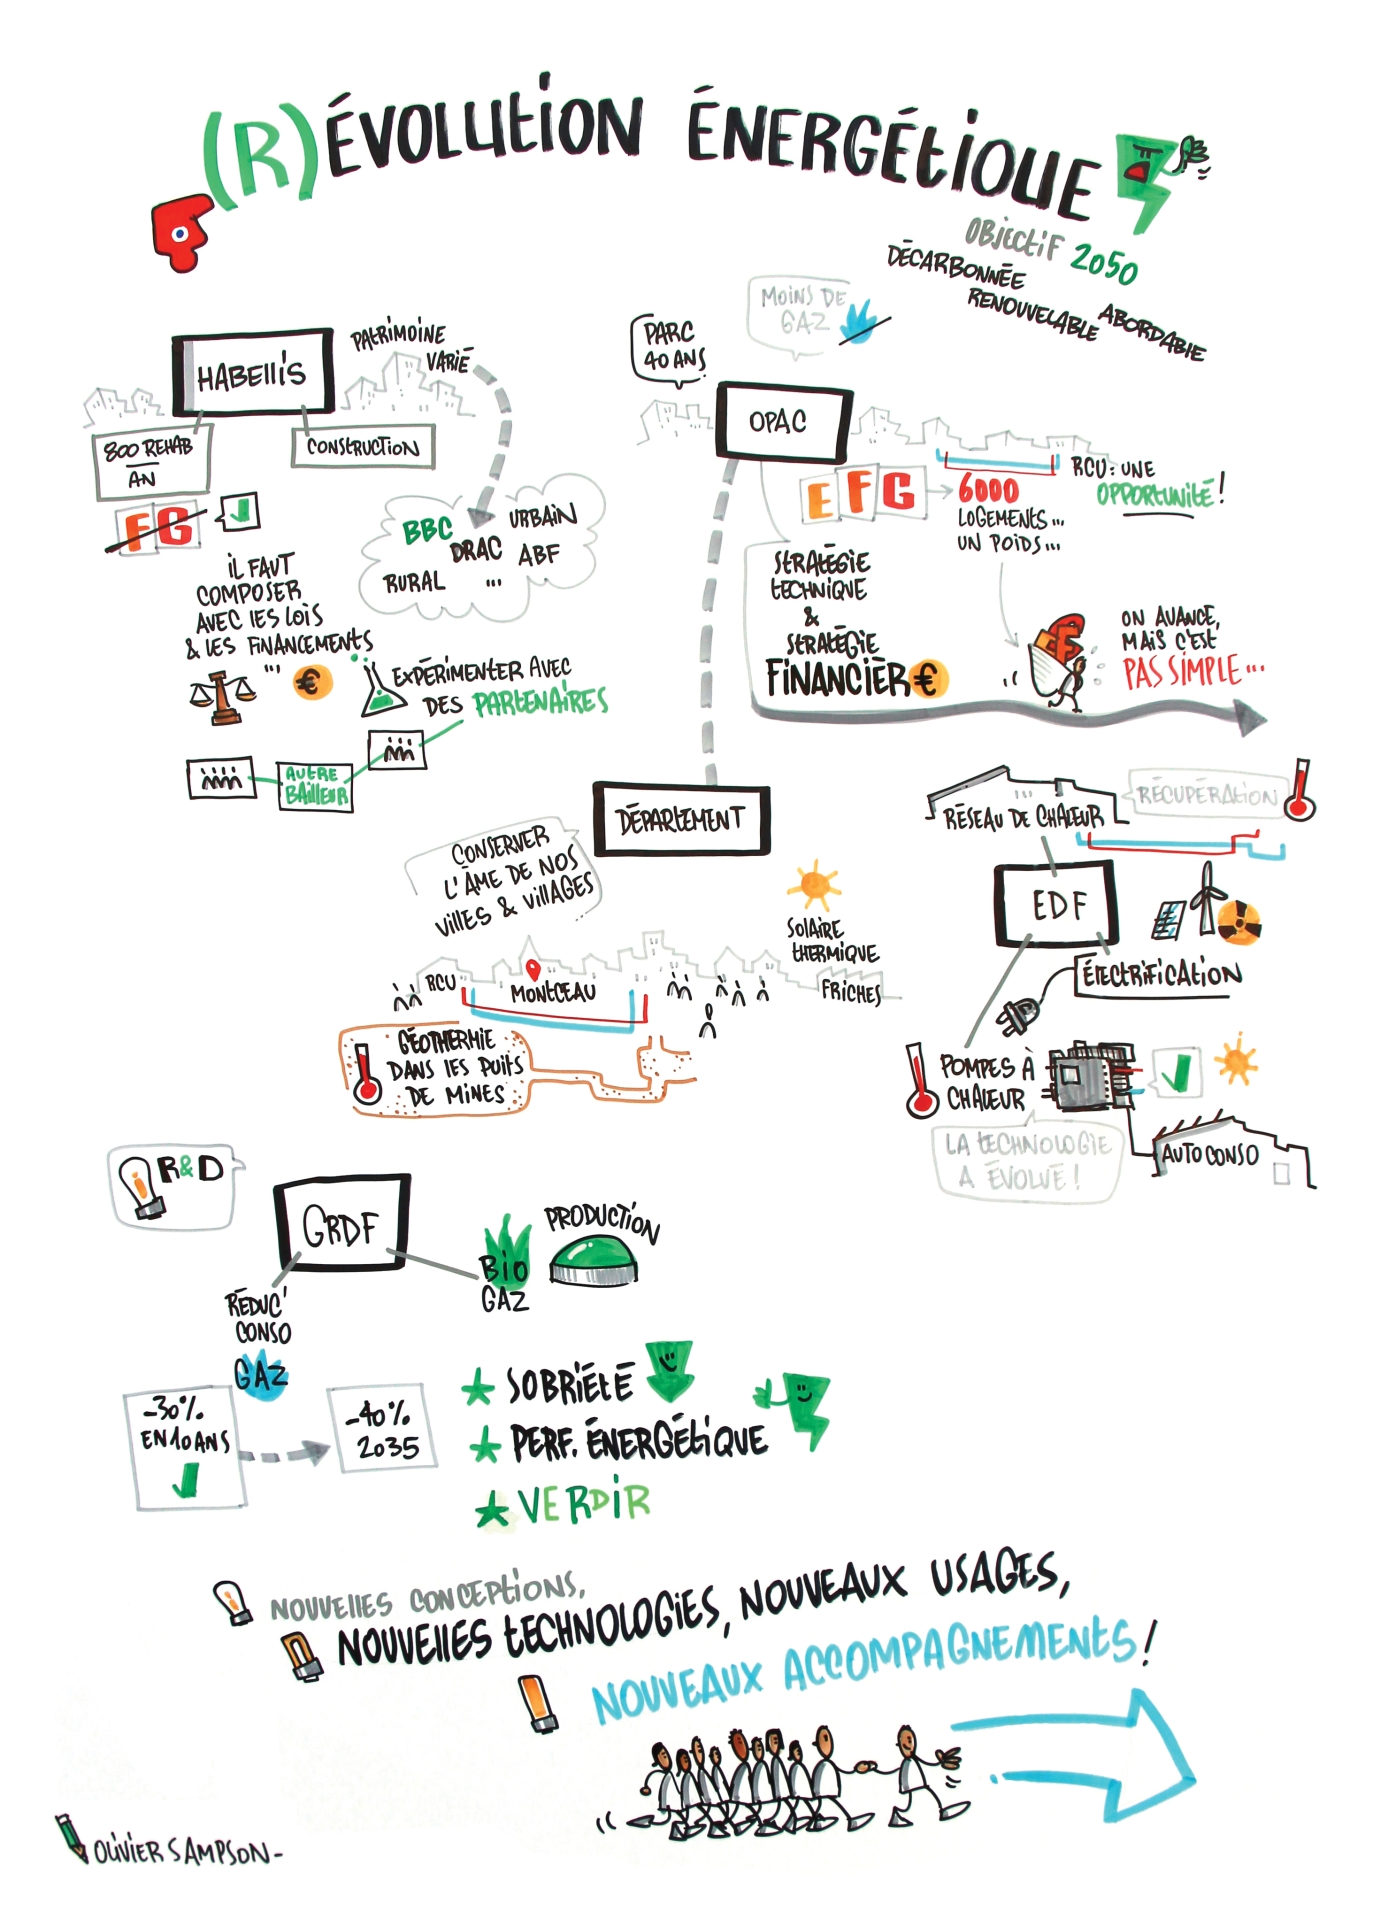 (R)ÉVOLUTION ÉNERGÉTIQUE
OBJECTIF 2050
DÉCARBONNÉE
RENOUVELABLE
ABORDABLE
HABELLIS
PATRIMOINE
VARIÉ
800 REHAB
AN
CONSTRUCTION
F G
BBC
URBAIN
DRAC
ABF
RURAL
...
IL FAUT
COMPOSER
AVEC LES LOIS
& LES FINANCEMENTS
...
€
EXPÉRIMENTER AVEC
DES PARTENAIRES
AUTRE
BAILLEUR
PARC
40 ANS
MOINS DE
GAZ
OPAC
E F G
6000
LOGEMENTS...
UN POIDS...
RCU: UNE
OPPORTUNITÉ!
STRATÉGIE
TECHNIQUE
&
STRATÉGIE
FINANCIÈR€
ON AVANCE,
MAIS C'EST
PAS SIMPLE...
DÉPARTEMENT
CONSERVER
L'ÂME DE NOS
VILLES & VILLAGES
SOLAIRE
THERMIQUE
RCU
MONTCEAU
FRICHES
GÉOTHERMIE
DANS LES PUITS
DE MINES
RÉSEAU DE CHALEUR
RÉCUPÉRATION
EDF
ÉLECTRIFICATION
POMPES À
CHALEUR
LA TECHNOLOGIE
A ÉVOLUÉ!
AUTO CONSO
R&D
GRDF
BIO
GAZ
PRODUCTION
RÉDUC'
CONSO
GAZ
-30%
EN 10 ANS
-40%
2035
SOBRIÉTÉ
PERF. ÉNERGÉTIQUE
VERDIR
NOUVELLES CONCEPTIONS,
NOUVELLES TECHNOLOGIES, NOUVEAUX USAGES,
NOUVEAUX ACCOMPAGNEMENTS!
OLIVIER SAMPSON-